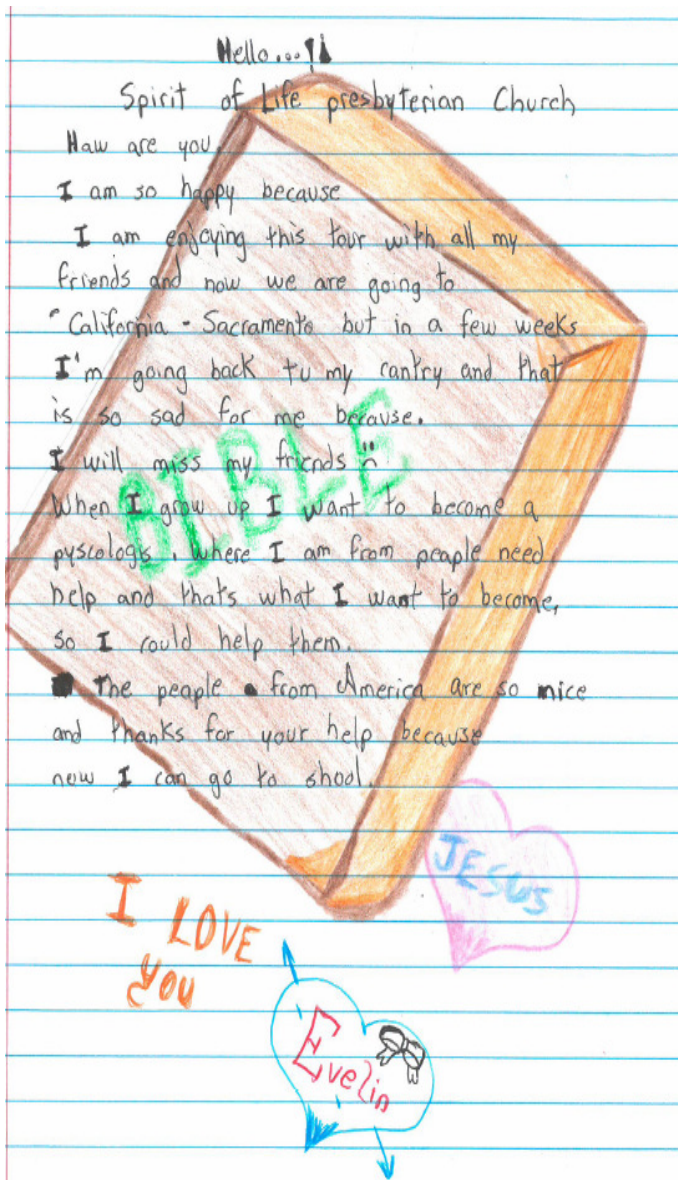 Hello...!!
Spirit of Life presbyterian Church
Haw are you.
I am so happy because
I am enjoying this tour with all my
friends and now we are going to
"California - Sacramento but in a few weeks
I'm going back tu my cantry and that
is so sad for me because.
I will miss my friends
BIBLE
When I grow up I want to become a
pyscologis. where I am from peaple need
help and thats what I want to become,
so I could help them.
The peaple from America are so nice
and thanks for your help because
now I can go to shool.
JESUS
I LOVE
YOU
Evelin